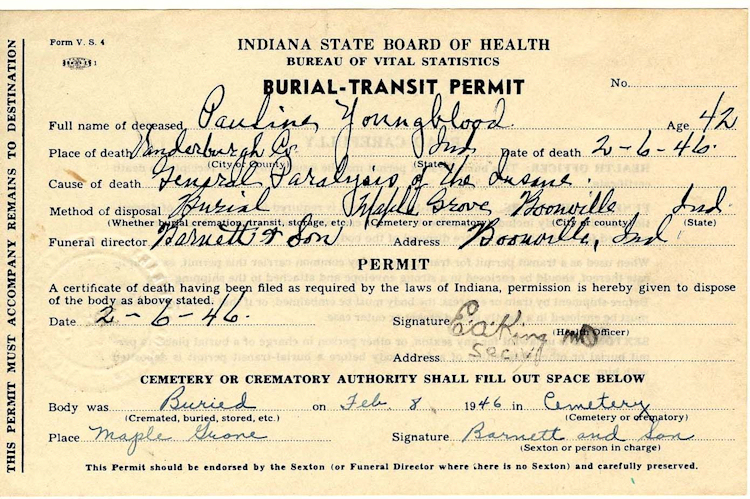 Form V. S. 4
INDIANA STATE BOARD OF HEALTH
BUREAU OF VITAL STATISTICS
BURIAL-TRANSIT PERMIT
No.
Full name of deceased Pauline Youngblood Age 42
Place of death Vanderburgh Co. Ind. Date of death 2-6-46.
(City or County) (State)
Cause of death General Paralysis of the Insane.
Method of disposal Burial Maple Grove Boonville Ind
(Whether burial, cremation, transit, storage, etc.) (Cemetery or crematory) (City or county) (State)
Funeral director Barnett & Son Address Boonville, Ind
PERMIT
A certificate of death having been filed as required by the laws of Indiana, permission is hereby given to dispose
of the body as above stated.
Date 2-6-46. Signature E.A. King MD
(Health Officer)
Address Secy
CEMETERY OR CREMATORY AUTHORITY SHALL FILL OUT SPACE BELOW
Body was Buried on Feb. 8 1946 in Cemetery
(Cremated, buried, stored, etc.) (Cemetery or crematory)
Place Maple Grove Signature Barnett and Son
(Sexton or person in charge)
This Permit should be endorsed by the Sexton (or Funeral Director where there is no Sexton) and carefully preserved.
THIS PERMIT MUST ACCOMPANY REMAINS TO DESTINATION